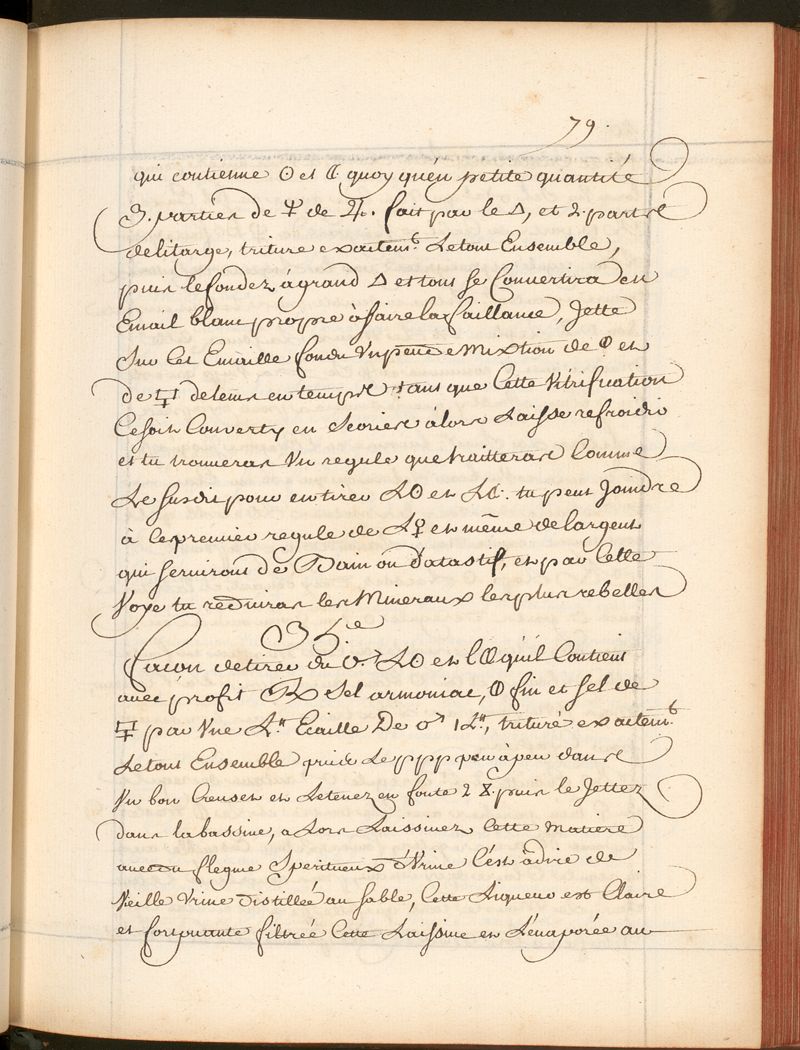 79.
qui contienne ☉ et ☾. quoy qu'en petite quantité
3. parties de 🜍 de ♃. fait par le △, et 2. partie
de litarge, triture exactemt. Letout Ensemble,
puis le fondez à grand △ et tous se Convertira en
Email blanc propre à faire la faillance, Jette
Sur Cet Emaille fondu Un peu de Mixtion de 🜕 et
de 🜿 de tems en temps tant que Cette Vitrification
Ce soit Converty en Scories àlors Laisse refroidir
et tu trouveras Un regule que traitteras Comme
Le Susdit pour en tirer L☉ et L☾. tu peut Joindre
à Ce premier regule de L♀ et même de largent
qui serviront de Bain ou d'atastif, et par Cette
Voye tu reduiras les Mineraux les plus rebelles
35.e
Facon de tirer du ♂ L☉ et l☾ qu'il Contient
avec profit ℞ Sel armoniac, 🜕 fin et sel de
🜿 par Une L.tt Ecaille De ♂ 1 L.tt, trituré exactem.t
Letout Ensemble puis Le ppp peu à peu dans
Un bon Creuset et Letenez en fonte 2 ⧖. puis le Jettez
dans la bassine, a Lors Laissivez Cette matiere
avec du flegme Speritueux d'Urine C'est à dire de
Vieille Urine distillée au sable, Cette Liqueur est Claire
et fort puante filtrée Cette Laissive et L'évaporée au